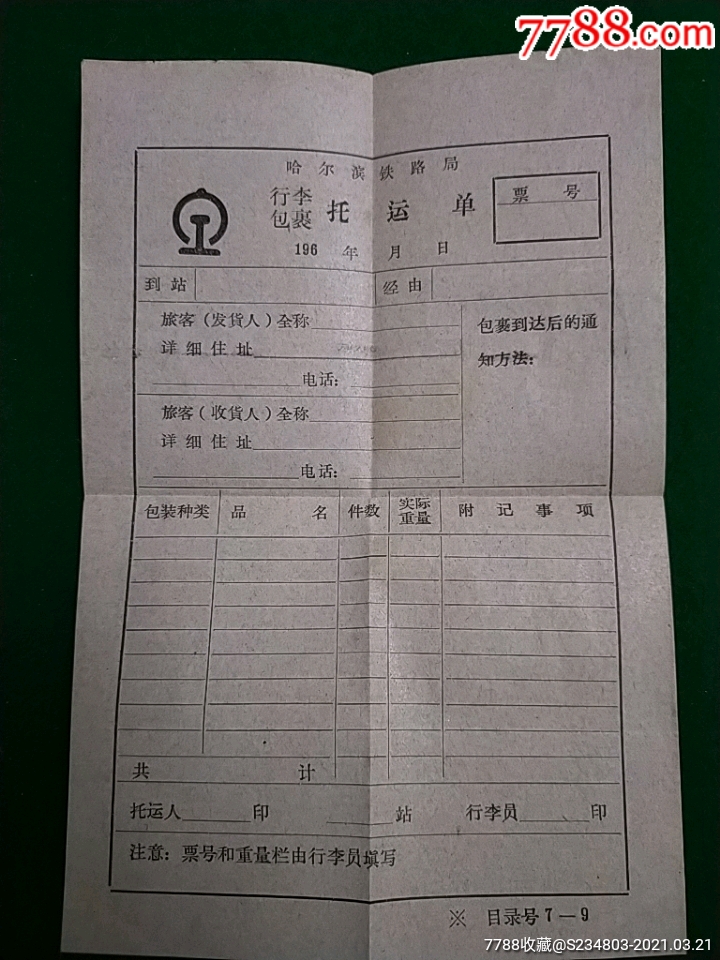 7788.com
哈尔滨铁路局
行李
包裹 托运单
票号
196 年 月 日
到站 经由
旅客（发货人）全称
详细住址
电话：
包裹到达后的通
知方法：
旅客（收货人）全称
详细住址
电话：
包装种类 品名 件数 实际重量 附记事项
共计
托运人 印 站 行李员 印
注意：票号和重量栏由行李员填写
※ 目录号7—9
7788收藏@S234803-2021.03.21